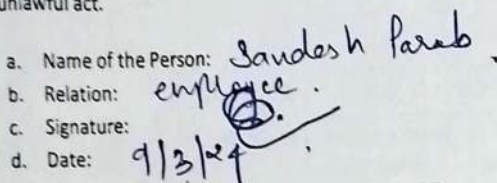 unlawful act.
a. Name of the Person: Sandesh Parab
b. Relation: employee.
c. Signature:
d. Date: 9/3/24